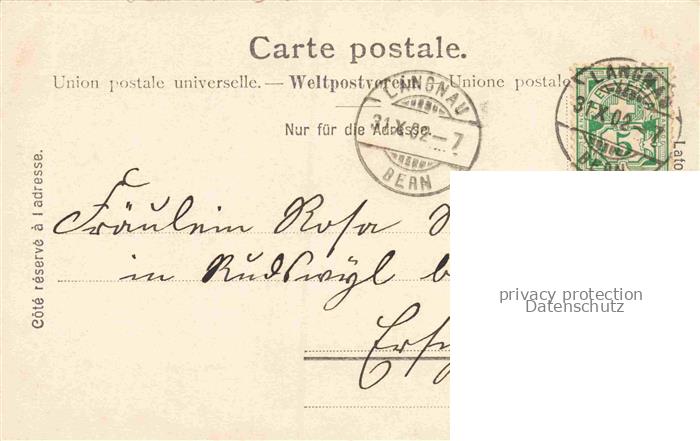 Carte postale.
Union postale universelle. — Weltpostverein — Unione postale
Nur für die Adresse.
LANGNAU
31.X.02-7
BERN
LANGNAU
31.X.02-7
BERN
5
Côté réservé à l'adresse.
Lato
Fräulein Rosa
in Rudswyl b
Ersi
privacy protection
Datenschutz